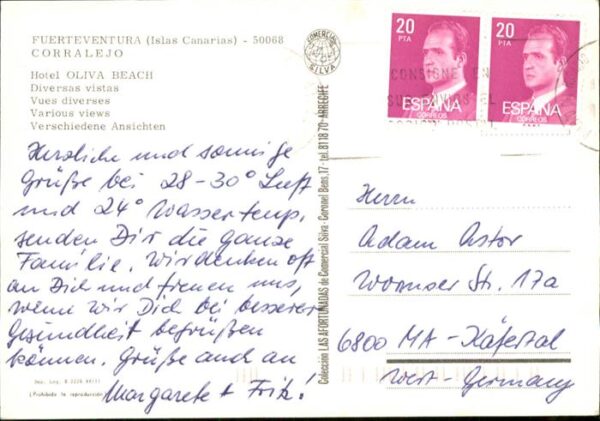 FUERTEVENTURA (Islas Canarias) - 50068
CORRALEJO
Hotel OLIVA BEACH
Diversas vistas
Vues diverses
Various views
Verschiedene Ansichten
Herzliche und sonnige
Grüße bei 28-30° Luft
und 24° Wassertemp.
senden Dir die ganze
Familie. Wir denken oft
an Dich und freuen uns,
wenn wir Dich bei besserer
Gesundheit begrüßen
können. Grüße auch an
Margarete + Fritz!
Dep. Leg. B.
(Prohibida la reproducción)
COMERCIAL
SILVA
Colección LAS AFORTUNADAS de Comercial Silva - Coronel Bens, 17 - tel. 81 18 70 - ARRECIFE
20
PTA
ESPAÑA
CORREOS
20
PTA
ESPAÑA
CORREOS
CONSIGNE EN
Herrn
Adam Astor
Wormser Str. 17a
6800 MA-Käfertal
West-Germany